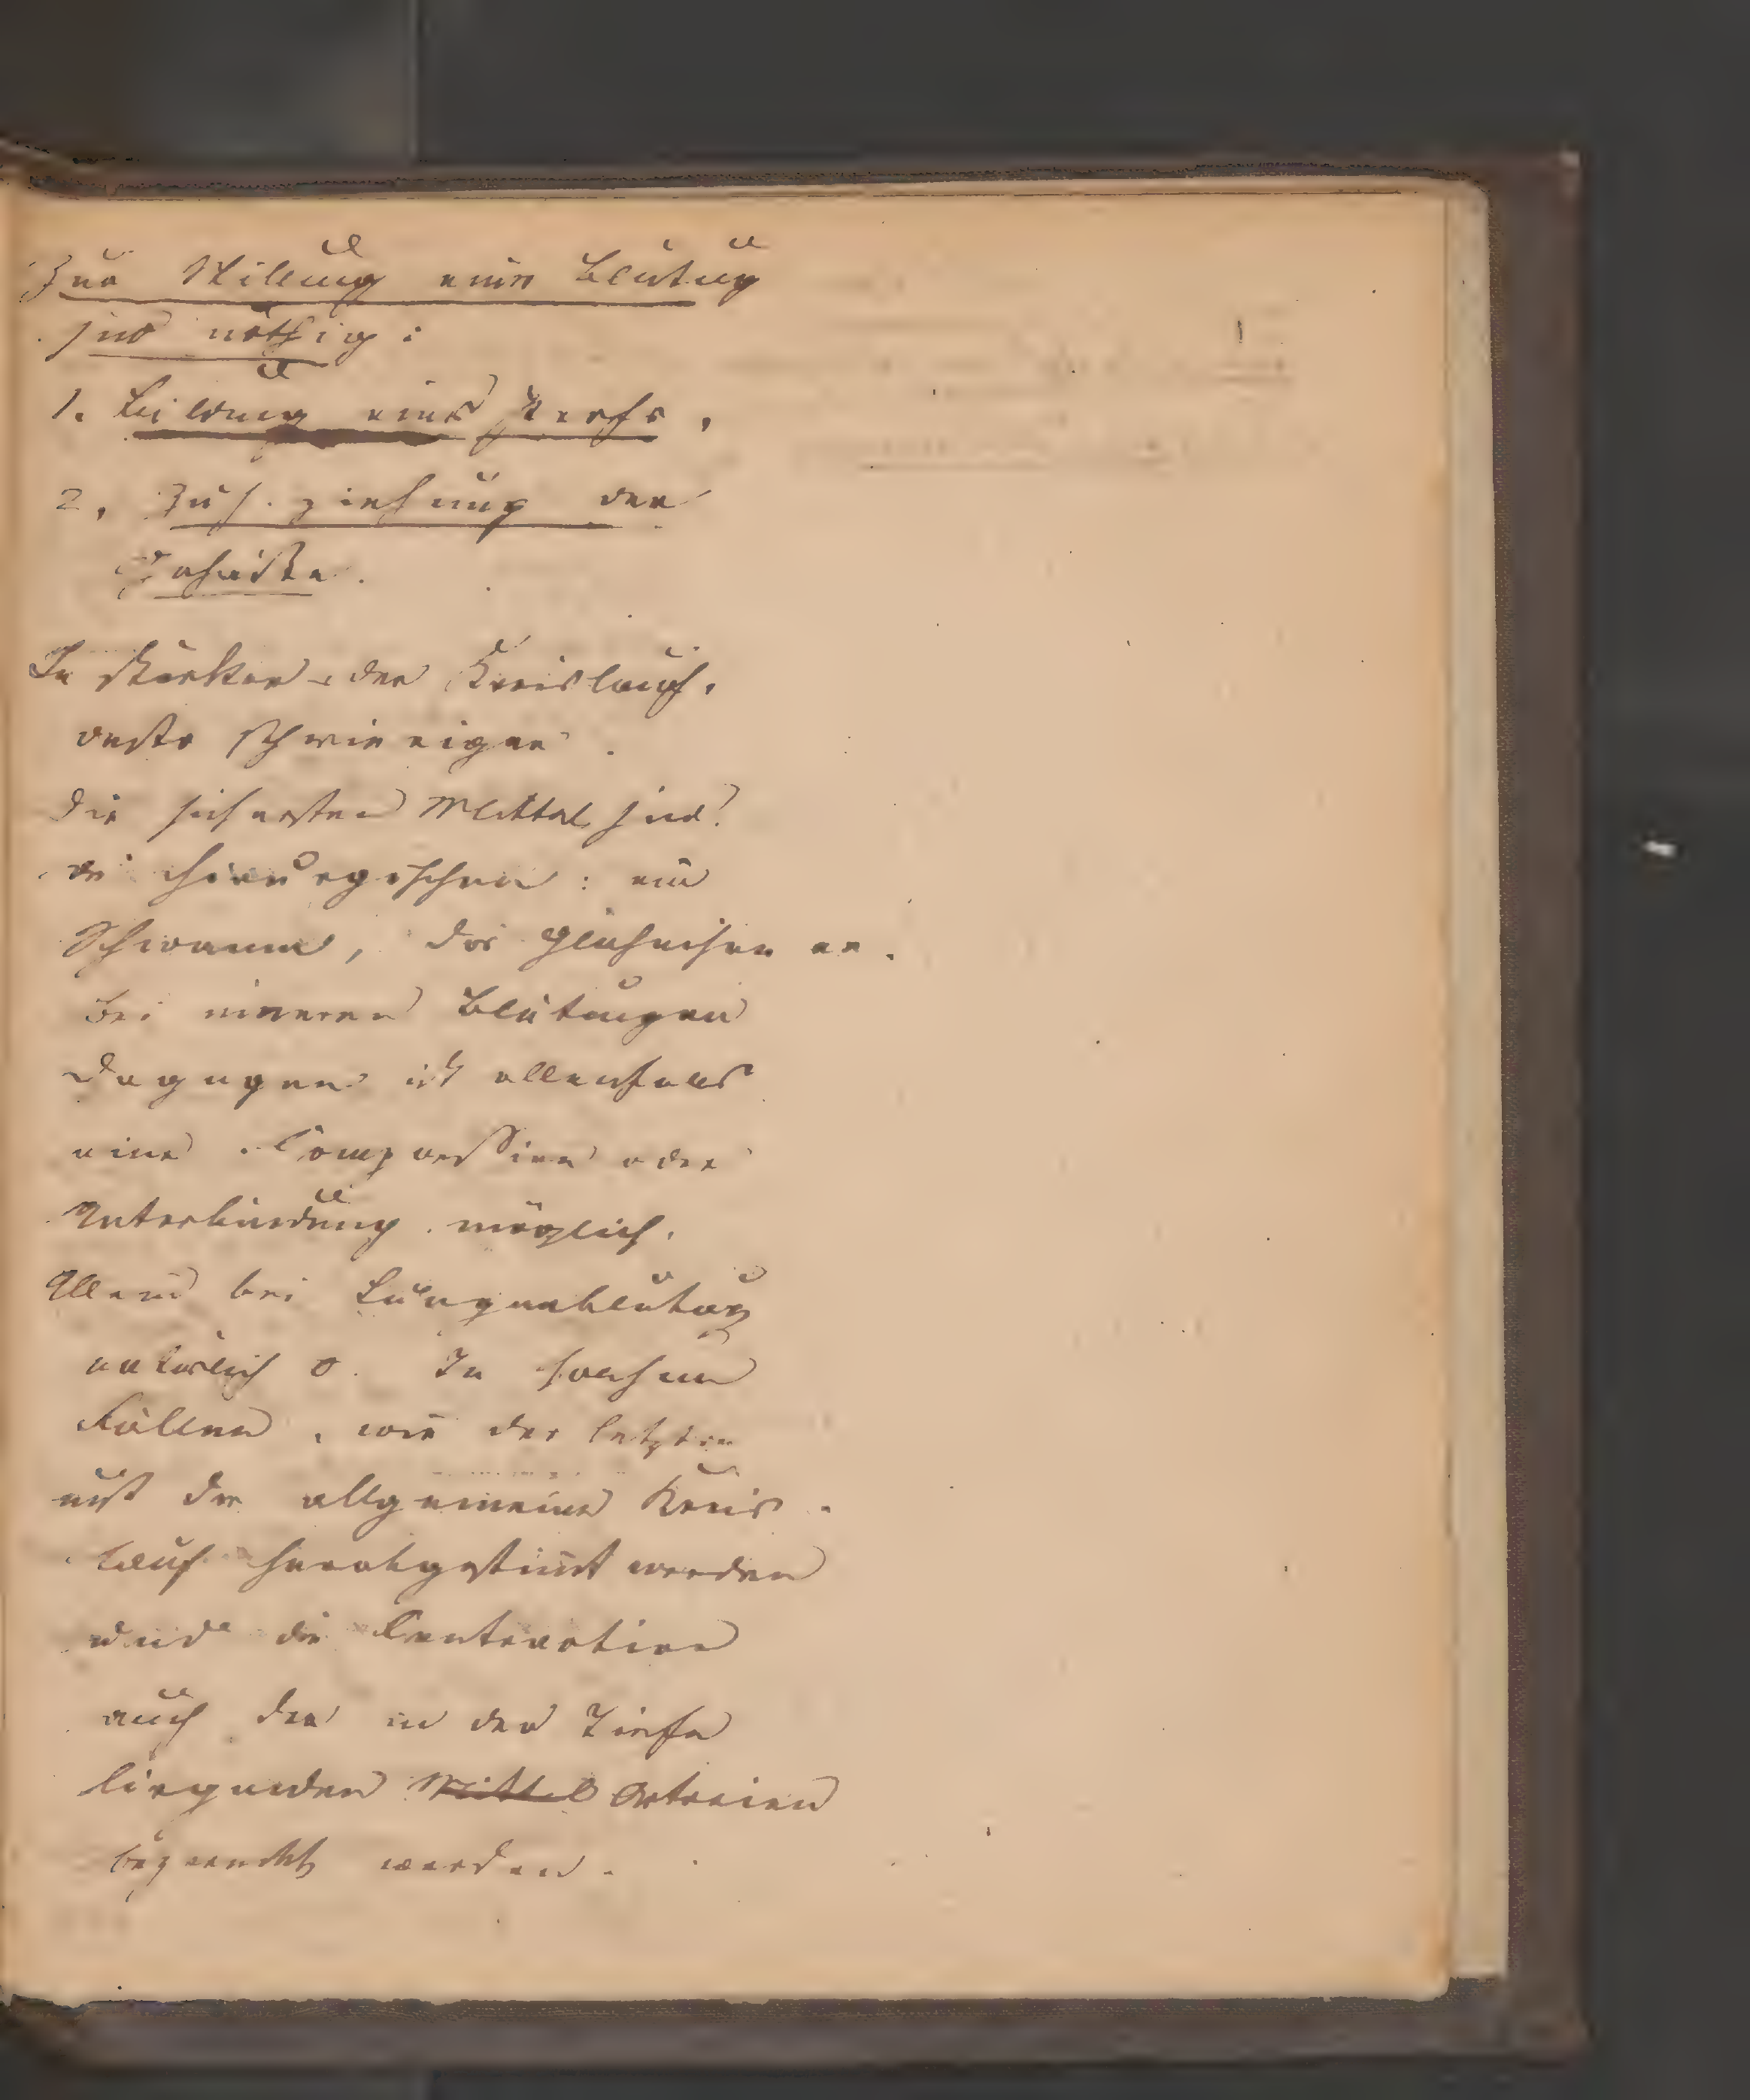 Zur Stillung einer Blutung
sind nöthig:
1. Bildung eines Pfropfs,
2, Zus. ziehung der
Gefäße.
Je stärker der Kreislauf,
desto schwieriger.
Die sichersten Mittel sind
die chirurgischen: ein
Schwamm, das Glüheisen
Bei inneren Blutungen
dagegen ist allenfalls
eine Compression oder
Unterbindung möglich.
Allein bei Lungenblutung
natürlich 0. In solchen
Fällen, wie der letztern
muß der allgemeine Kreis-
lauf herabgestimt werden
und die Contraction
auch der in der Tiefe
liegenden Mittel Arterien
bezweckt werden.